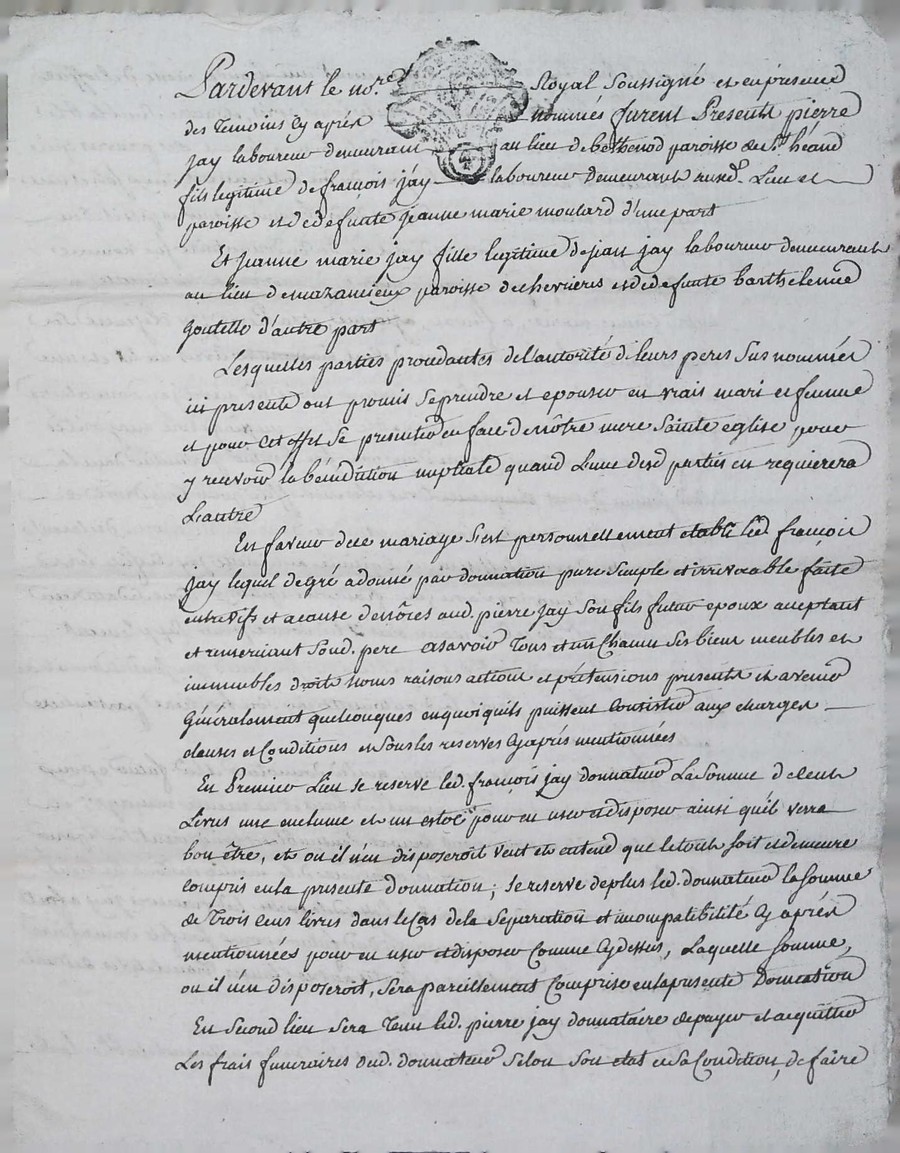 Pardevant le no.re Royal Soussigné et en presence
des Temoins Cy aprés nommés furent Presents pierre
jay laboureur demeurant au lieu de bethenod paroisse de St. héand
fils legitime de françois jay laboureur demeurant ausd. Lieu et
paroisse et de defunte jeanne marie moulard d'une part
Et jeanne marie jay fille legitime de jean jay laboureur demeurant
au lieu de mazancieux paroisse de chevrieres et de defunte barthelemie
goutelle d'autre part
Lesquelles parties procedantes de l'autorité de leurs peres Sus nommés
ici presents ont promis Se prendre et epouser en vrais mari et femme
et pour cet effet Se presenter en face de nôtre mere Sainte eglise pour
y recevoir la bénédiction nuptiale quand L'une desd. parties en requierera
L'autre
En faveur de ce mariage S'est personnellement etabli led. françois
jay lequel de gré a donné par donnation pure Simple et irrevocable faite
entre vifs et a cause de nôces aud. pierre jay Son fils futur epoux acceptant
et remerciant Sond. pere asavoir Tous et un Chacun Ses biens meubles et
immeubles droits noms raisons actions et prétensions presents et avenir
Généralement quelconques en quoi quils puissent Consister aux charges
clauses et Conditions et Sous les reserves Cy aprés mentionnées
En Premier Lieu se reserve led. françois jay donnateur La Somme de Cent
Livres une enclume et un estoc pour en user et disposer ainsi qu'il verra
bon être, et ou il n'en disposeroit veut et entend que le tout soit et demeure
compris en la presente donnation; Se reserve de plus led. donnateur la Somme
de Trois Cens livres dans le Cas de la Separation et incompatibilité Cy aprés
mentionnées pour en user et disposer Comme Cy dessus, Laquelle Somme,
ou il n'en disposeroit, Sera pareillement Comprise en la presente Donnation
En Second lieu Sera Tenu led. pierre jay donnataire de payer et acquitter
Les frais funeraires dud. donnateur Selon Son etat et Sa Condition, de faire